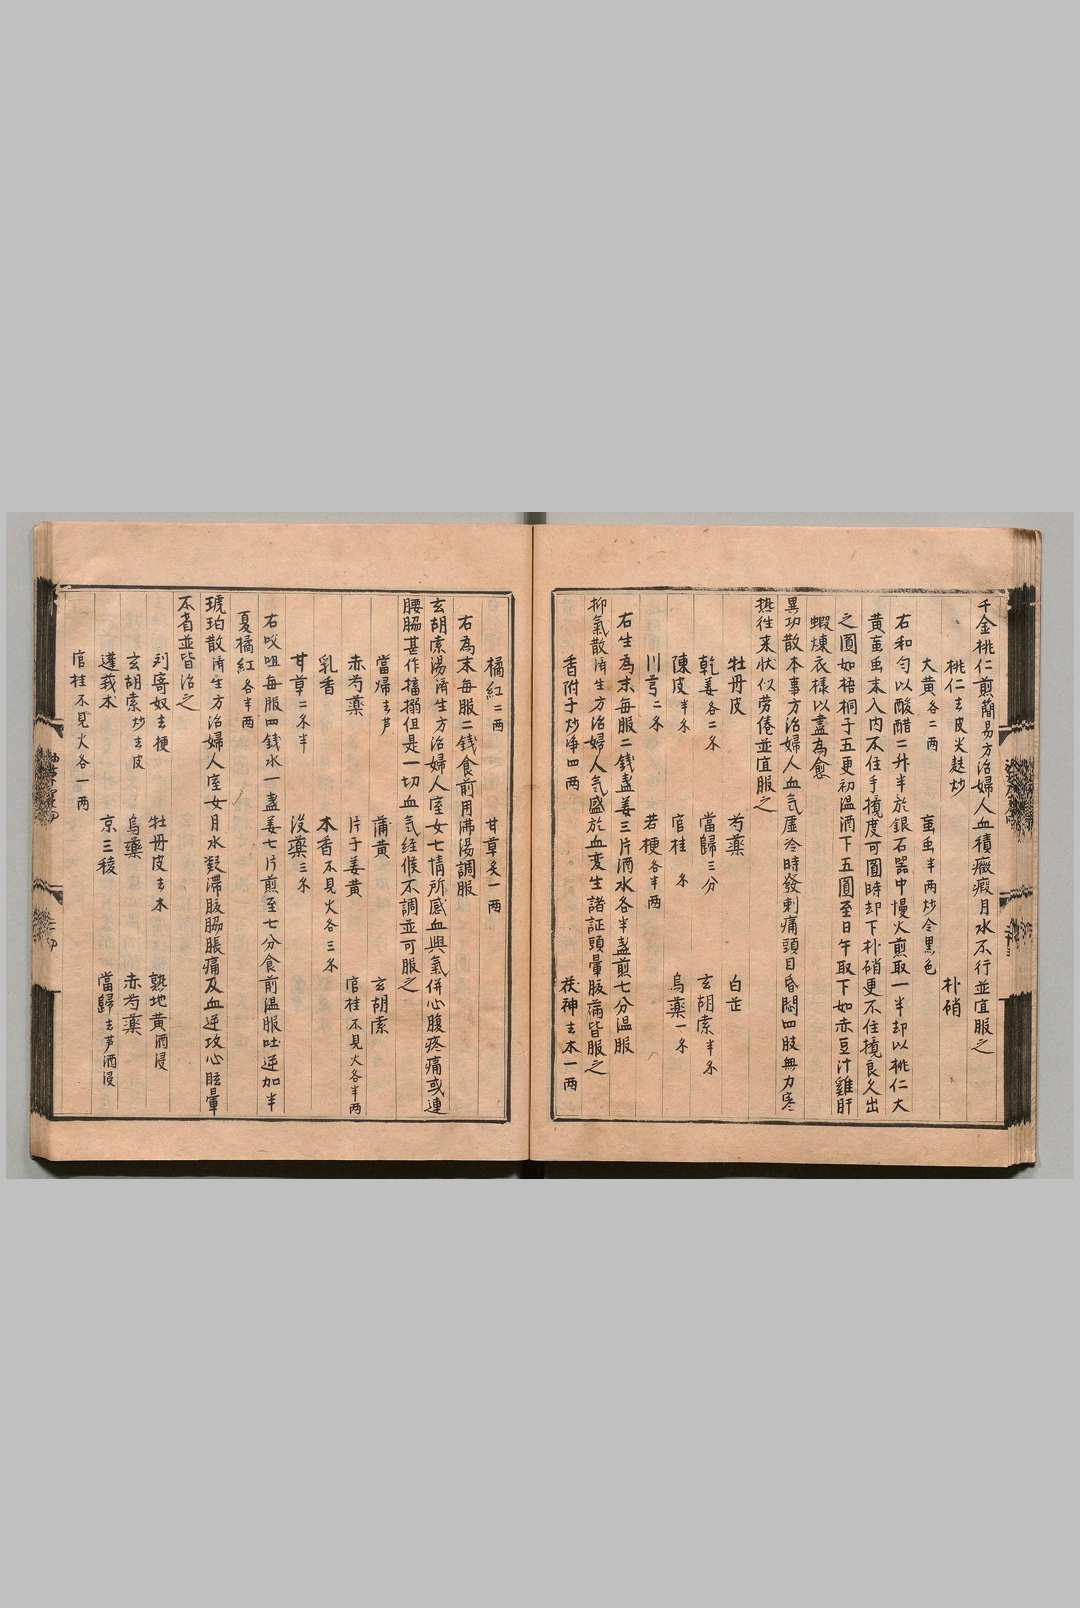 千金桃仁煎簡易方治婦人血積癥瘕月水不行並宜服之
桃仁去皮尖麩炒 朴硝
大黄各二两 䖟虫半两炒令黒色
右和匀以酸醋二升半於銀石器中慢火煎取一半却以桃仁大
黄䖟虫末入内不住手攪度可圓時却下朴硝更不住攪良久出
之圓如梧桐子五更初温酒下五圓至日午取下如赤豆汁雞肝
蝦煉衣様以盡為愈
異功散本事方治婦人血气虚冷時發刺痛頭目昏悶四肢無力寒
热往来状似劳倦並宜服之
牡丹皮 芍藥 白芷
乾姜各二条 當歸三分 玄胡索半条
陳皮半条 官桂 条 烏藥一条
川芎二条 若梗各半两
右生為末每服二銭盞姜三片酒水各半盞煎七分温服
抑氣散済生方治婦人气盛於血变生諸証頭暈腹满皆服之
香附子炒净四两 茯神去木一两
橘紅二两 甘草炙一两
右為末每服二銭食前用沸湯調服
玄胡索湯済生方治婦人室女七情所感血與氣併心腹疼痛或連
腰脇甚作搐搦但是一切血气経候不調並可服之
當帰去芦 蒲黄 玄胡索
赤芍藥 片子姜黄 官桂不見火各半两
乳香 木香不見火各三条
甘草二条半 没藥三条
右㕮咀每服四銭水一盞姜七片煎至七分食前温服吐逆加半
夏橘紅各半两
琥珀散済生方治婦人室女月水澁滞腹脇脹痛及血逆攻心眩暈
不省並皆治之
刘寄奴去梗 牡丹皮去木 熟地黄酒浸
玄胡索炒去皮 烏藥 赤芍藥
蓬莪朮 京三稜 當歸去芦酒浸
官桂不見火各一两